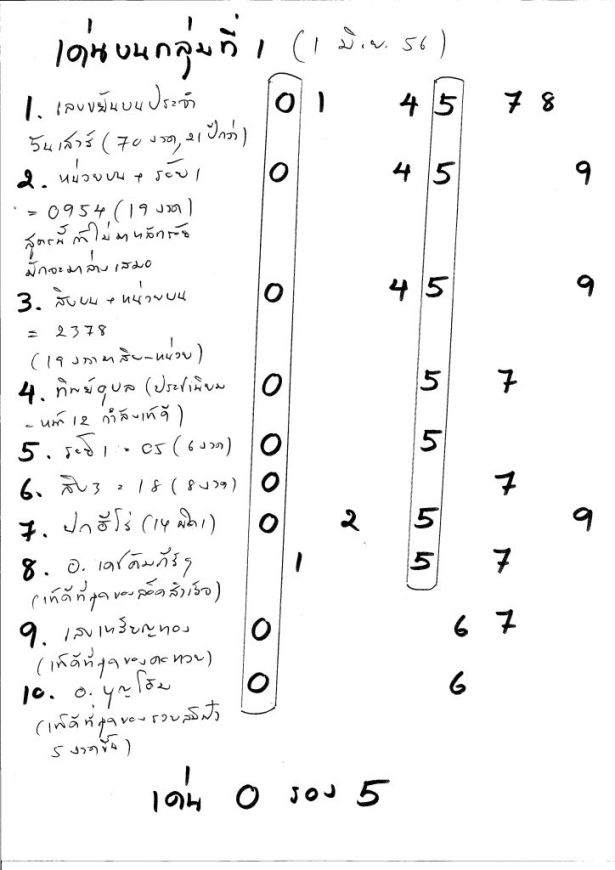 เด่นบนกลุ่มที่ 1 (1 มิ.ย. 56)
1. เลขขยันบนประจำ 0 1 4 5 7 8
วันเสาร์ (70 งวด, 21 ปีกว่า)
2. หน่วยบน + ระยับ 1 0 4 5 9
= 0954 (19 งวด)
สูตรนี้ ถ้าไม่มาหลัก
มักจะมาล่างเสมอ
3. สิบบน + หน่วยบน 0 4 5 9
= 2378
(19 งวด มาสิบ-หน่วย)
4. ทิพย์อุบล (ประชานิยม 0 5 7
- หน้า 12 กำลังเต๊ดี)
5. 1 = 05 (6 งวด) 0 5
6. สิบ 3 = 18 (8 งวด) 0 7
7. ปกฮีโร่ (14 ผิด 1) 0 2 5 9
8. อ. 1 5 7
(เต๊ดีที่สุดของล็อคสำเร็จ)
9. เลขเหรียญทอง 0 6 7
(เต๊ดีที่สุดของ)
10. อ. บุญโฮม 0 6
(เต๊ดีที่สุดของรวย
5 งวดขึ้น)
เด่น 0 รอง 5